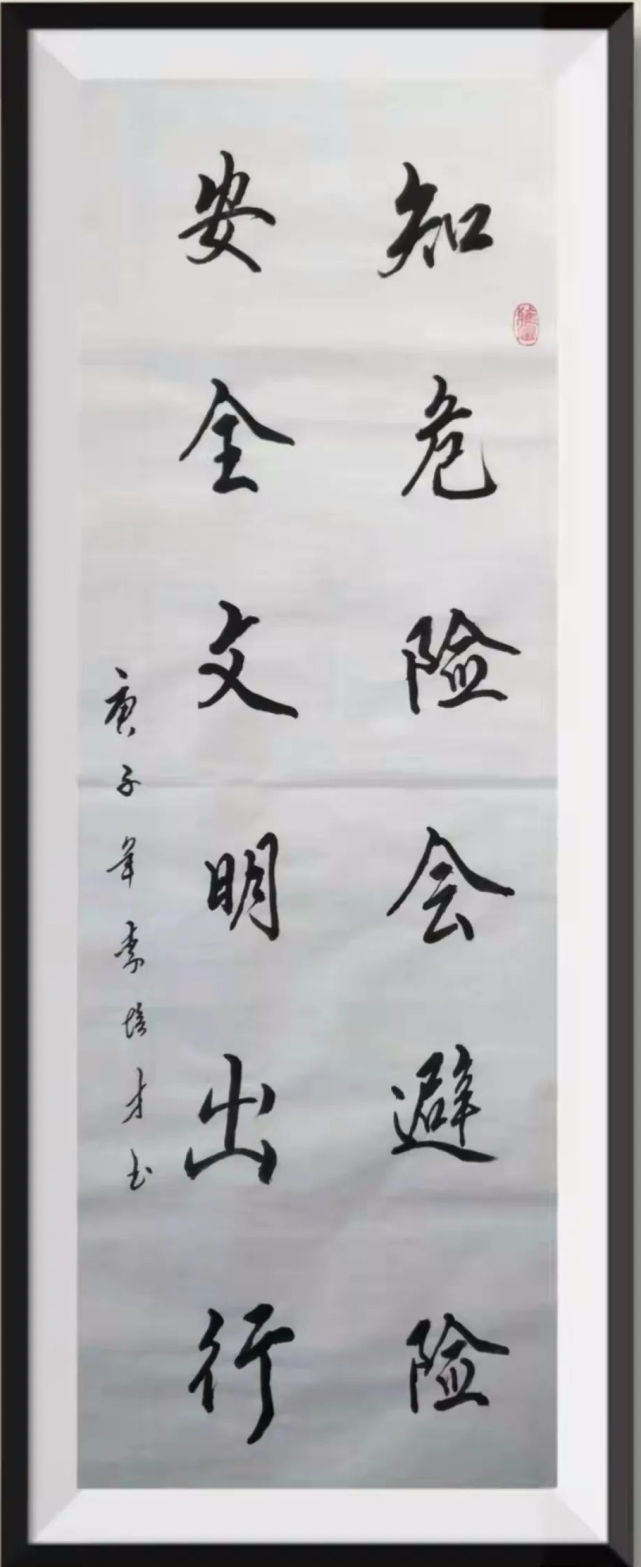 知危险会避险
安全文明出行
庚子年李培才书